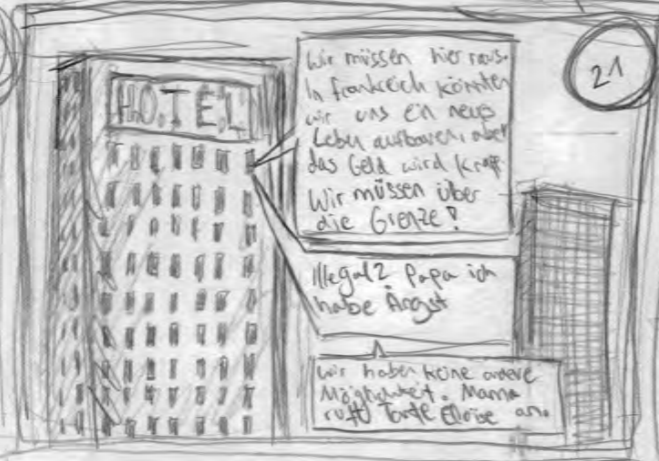 HOTEL
21
Wir müssen hier raus.
In Frankreich könnten
wir uns ein neues
Leben aufbauen, aber
das Geld wird knapp.
Wir müssen über
die Grenze!
Illegal? Papa ich
habe Angst
Wir haben keine andere
Möglichkeit. Mama
ruft Tante Eloise an.